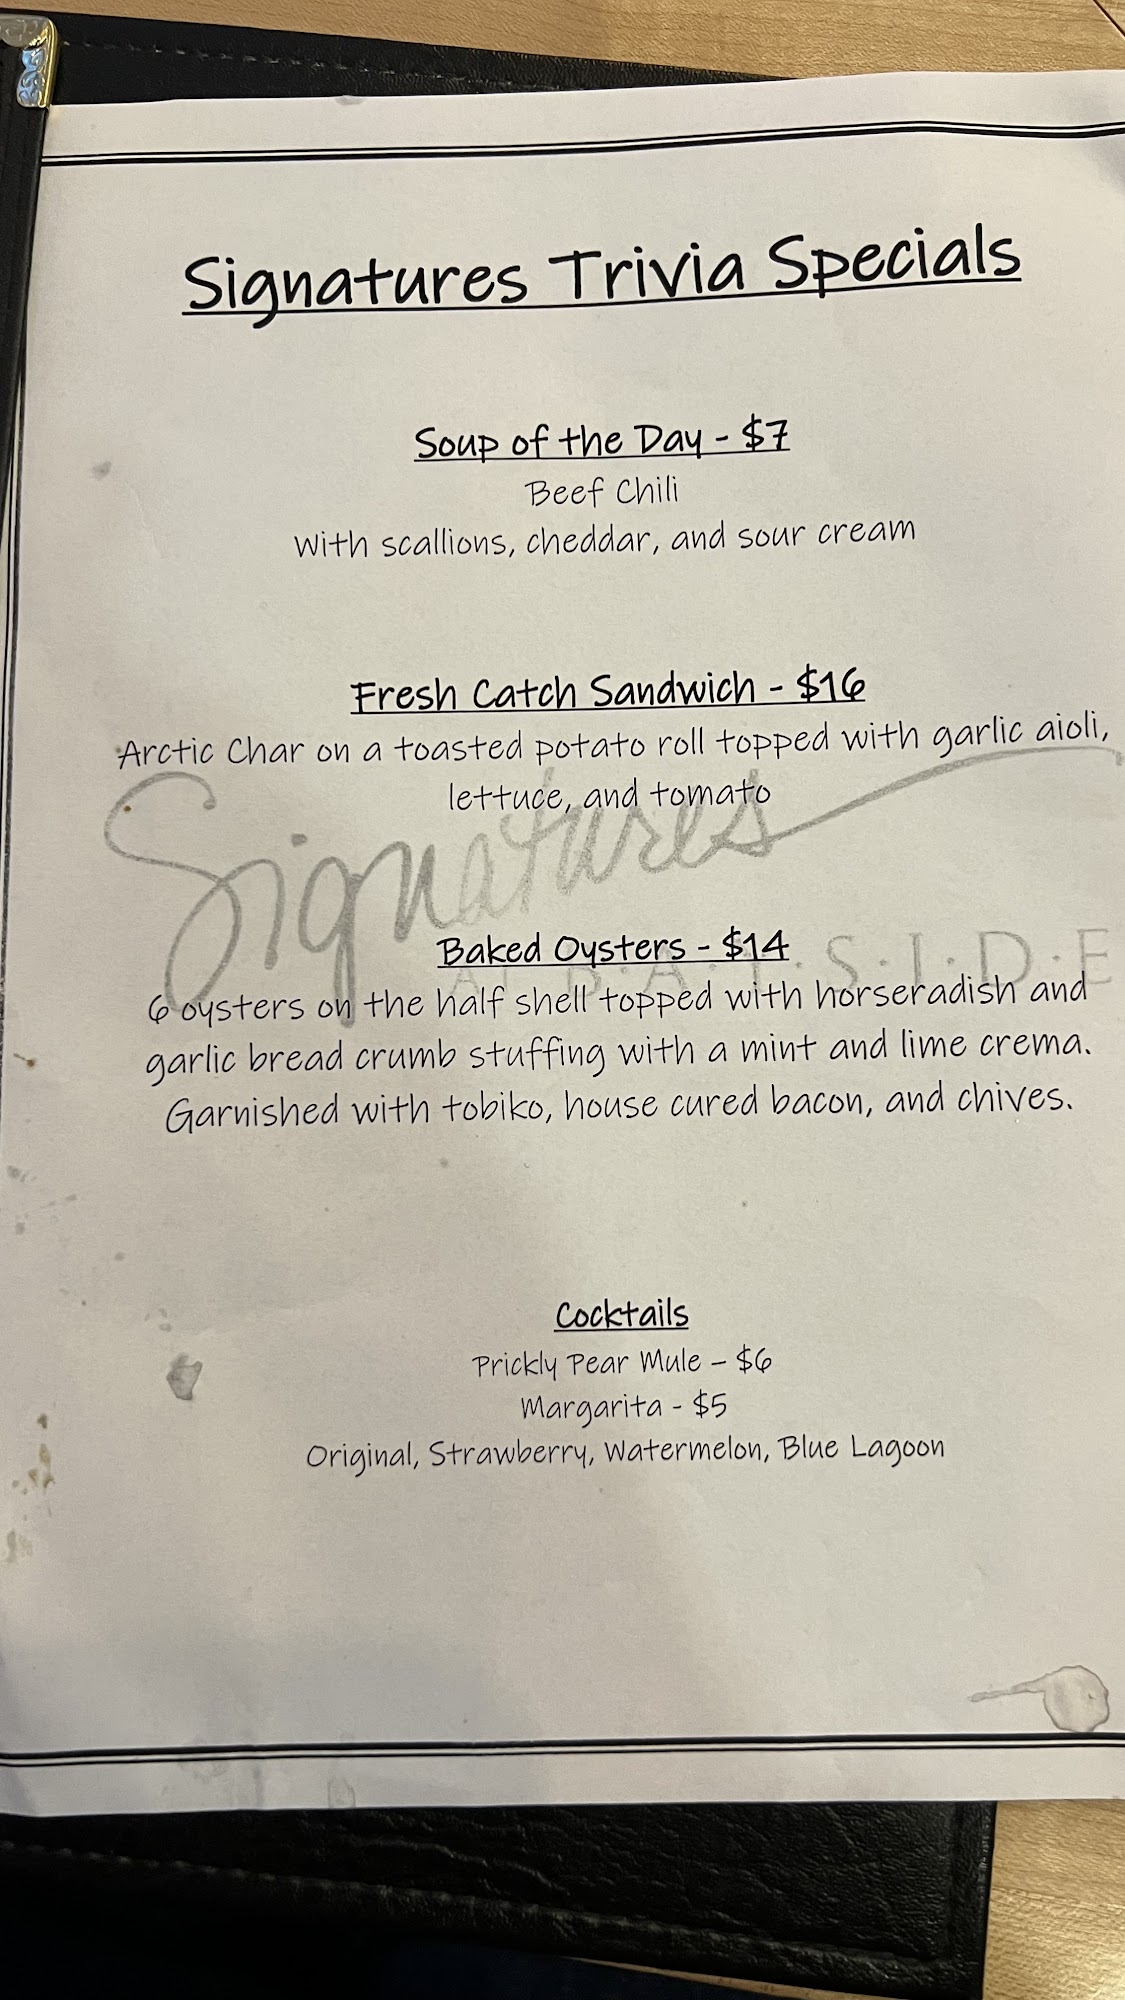 Signatures Trivia Specials
Soup of the Day - $7
Beef Chili
With scallions, cheddar, and sour cream
Fresh Catch Sandwich - $16
Arctic Char on a toasted potato roll topped with garlic aioli,
lettuce, and tomato
Signatures
Baked Oysters - $14
AT B·A·Y·S·I·D·E
6 oysters on the half shell topped with horseradish and
garlic bread crumb stuffing with a mint and lime crema.
Garnished with tobiko, house cured bacon, and chives.
Cocktails
Prickly Pear Mule – $6
Margarita - $5
Original, Strawberry, Watermelon, Blue Lagoon